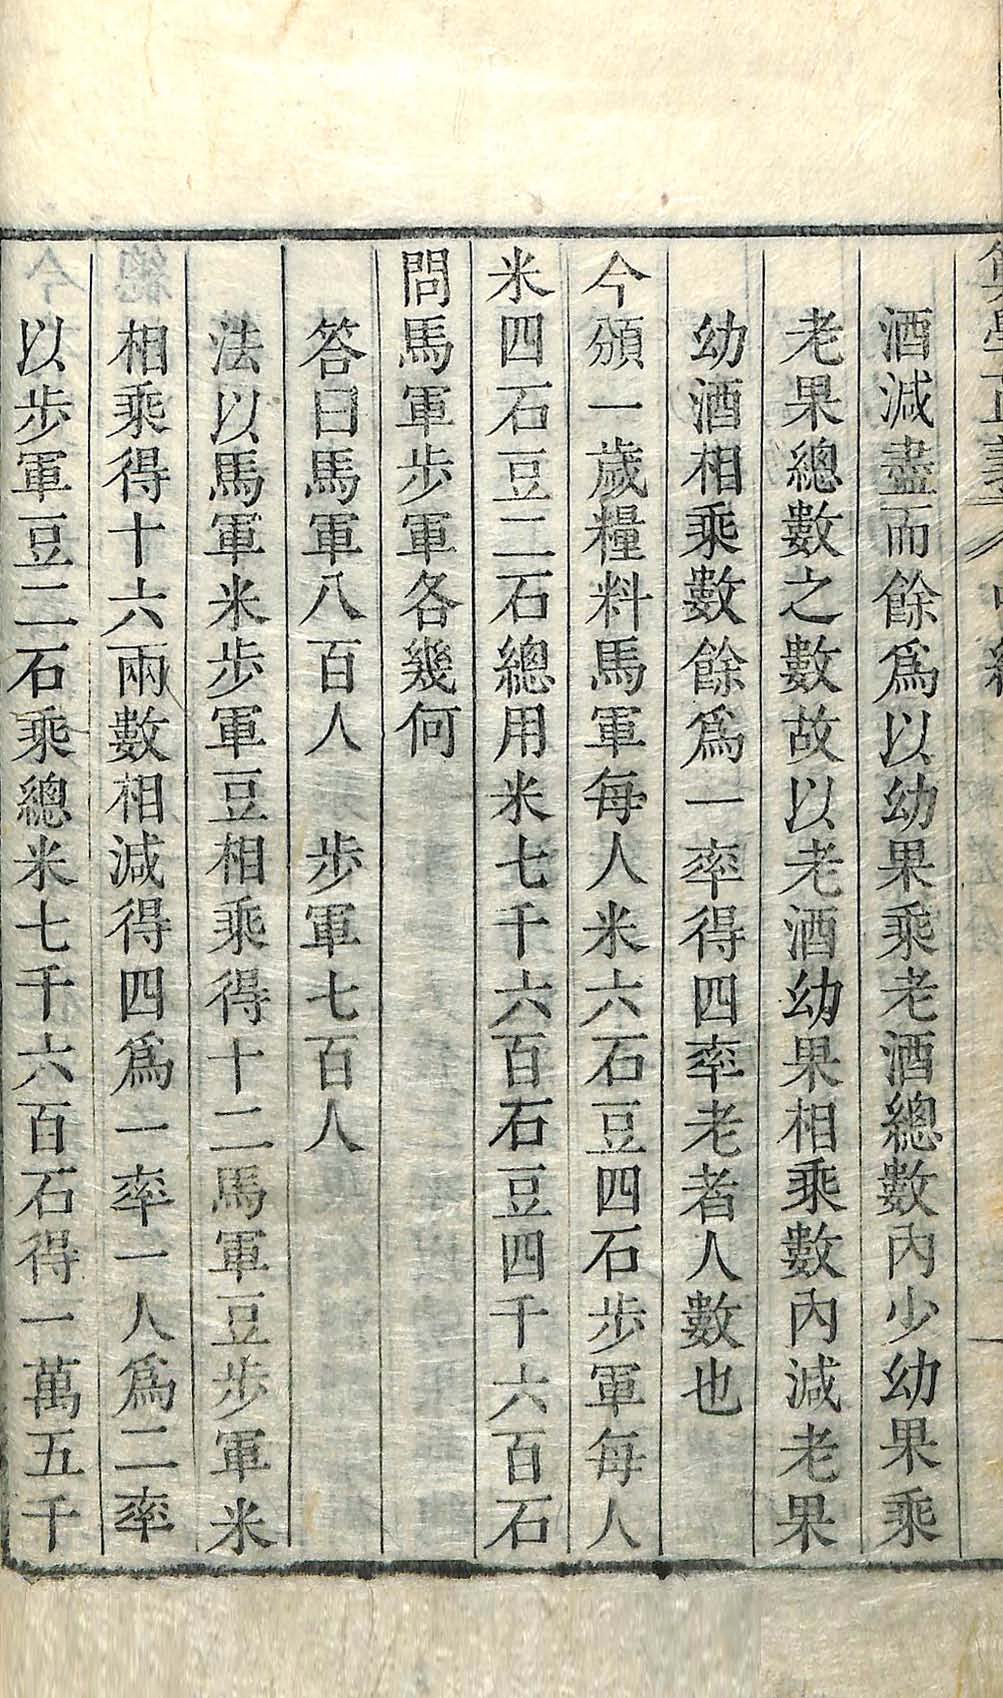 酒減盡而餘爲以幼果乘老酒總數內少幼果乘
老果總數之數故以老酒幼果相乘數內減老果
幼酒相乘數餘爲一率得四率老者人數也
今頒一歲糧料馬軍每人米六石豆四石步軍每人
米四石豆二石總用米七千六百石豆四千六百石
問馬軍步軍各幾何
答曰馬軍八百人　步軍七百人
法以馬軍米步軍豆相乘得十二馬軍豆步軍米
相乘得十六兩數相減得四爲一率一人爲二率
以步軍豆二石乘總米七千六百石得一萬五千